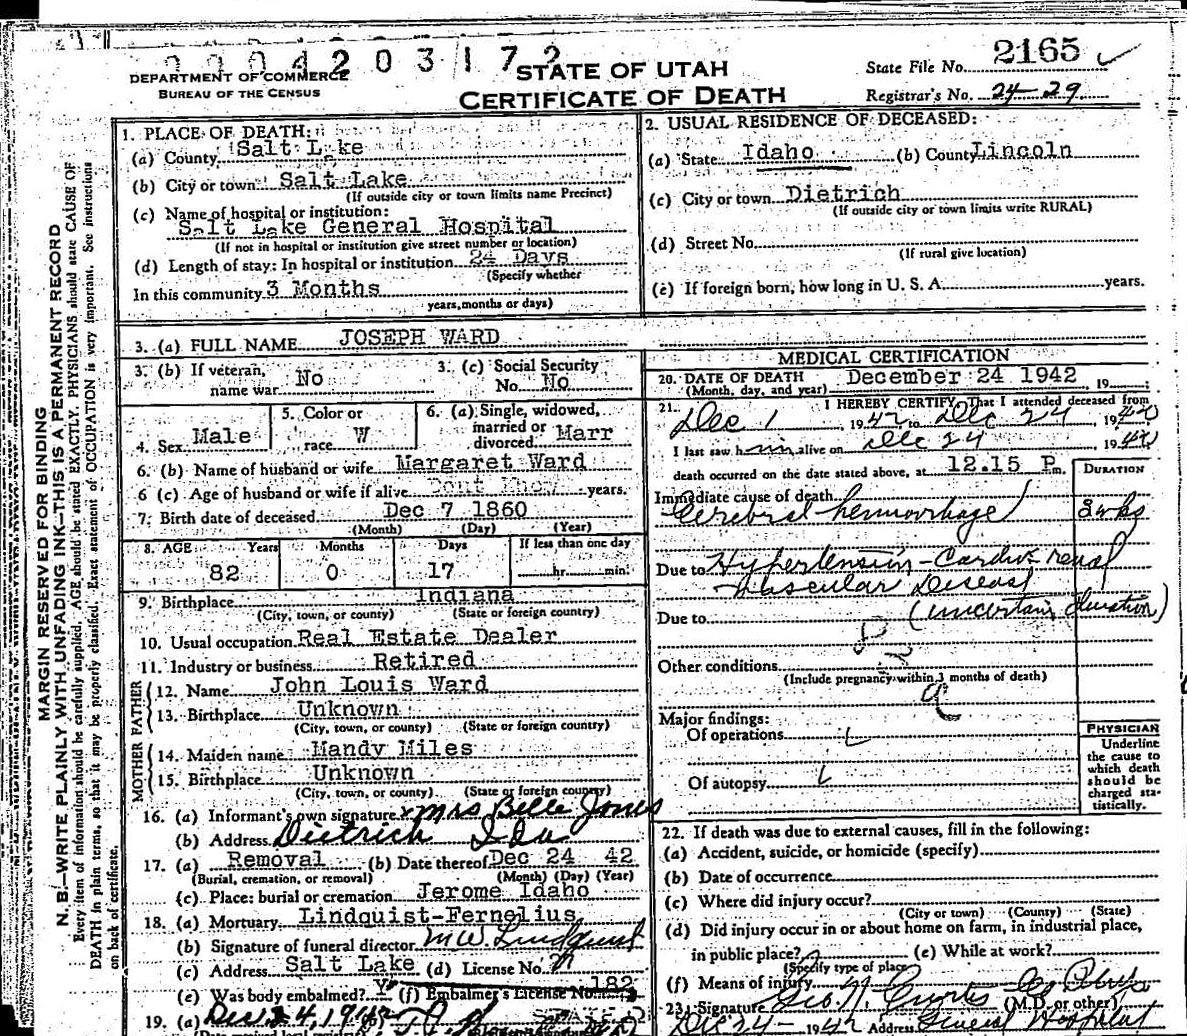 0004203172
DEPARTMENT OF COMMERCE
BUREAU OF THE CENSUS
STATE OF UTAH
CERTIFICATE OF DEATH
State File No. 2165
Registrar's No. 24-29
MARGIN RESERVED FOR BINDING
N. B.—WRITE PLAINLY WITH UNFADING INK—THIS IS A PERMANENT RECORD
Every item of information should be carefully supplied. AGE should be stated EXACTLY. PHYSICIANS should state CAUSE OF
DEATH in plain terms, so that it may be properly classified. Exact statement of OCCUPATION is very important. See instructions
on back of certificate.
1. PLACE OF DEATH:
(a) County Salt Lake
(b) City or town Salt Lake
(If outside city or town limits name Precinct)
(c) Name of hospital or institution:
Salt Lake General Hospital
(If not in hospital or institution give street number or location)
(d) Length of stay: In hospital or institution 24 Days
(Specify whether
In this community 3 Months
years, months or days)
2. USUAL RESIDENCE OF DECEASED:
(a) State Idaho (b) County Lincoln
(c) City or town Dietrich
(If outside city or town limits write RURAL)
(d) Street No.
(If rural give location)
(e) If foreign born, how long in U. S. A. years.
3. (a) FULL NAME JOSEPH WARD
3. (b) If veteran, name war No
3. (c) Social Security No. No
4. Sex Male
5. Color or race W
6. (a) Single, widowed, married or divorced Marr
6. (b) Name of husband or wife Margaret Ward
6 (c) Age of husband or wife if alive Dont Know years.
7. Birth date of deceased Dec 7 1860
(Month) (Day) (Year)
8. AGE Years Months Days If less than one day
82 0 17 hr. min.
9. Birthplace Indiana
(City, town, or county) (State or foreign country)
10. Usual occupation Real Estate Dealer
11. Industry or business Retired
FATHER
12. Name John Louis Ward
13. Birthplace Unknown
(City, town, or county) (State or foreign country)
MOTHER
14. Maiden name Mandy Miles
15. Birthplace Unknown
(City, town, or county) (State or foreign country)
16. (a) Informant's own signature x Mrs Belle Jones
(b) Address Dietrich Ida
17. (a) Removal (b) Date thereof Dec 24 42
(Burial, cremation, or removal) (Month) (Day) (Year)
(c) Place: burial or cremation Jerome Idaho
18. (a) Mortuary Lindquist-Fernelius
(b) Signature of funeral director M.W. Lindquist
(c) Address Salt Lake (d) License No.
(e) Was body embalmed? (f) Embalmer's License No. 182
19. (a) Dec 24, 1942
MEDICAL CERTIFICATION
20. DATE OF DEATH December 24 1942, 19
(Month, day, and year)
21. I HEREBY CERTIFY, That I attended deceased from
Dec 1, 1942 to Dec 24, 1942
I last saw him alive on Dec 24 1942
death occurred on the date stated above, at 12.15 P m.
DURATION
Immediate cause of death
Cerebral hemorrhage 3 wks
Due to Hypertensive-Cardio renal
Vascular Disease
(uncertain duration)
Due to
Other conditions
(Include pregnancy within 3 months of death)
Major findings:
Of operations
Of autopsy
PHYSICIAN
Underline
the cause to
which death
should be
charged sta-
tistically.
22. If death was due to external causes, fill in the following:
(a) Accident, suicide, or homicide (specify)
(b) Date of occurrence
(c) Where did injury occur?
(City or town) (County) (State)
(d) Did injury occur in or about home on farm, in industrial place,
in public place? (e) While at work?
(Specify type of place)
(f) Means of injury
23. Signature Geo N. Curtis (M.D. or other)
Dec 24 1942 Address General Hospital